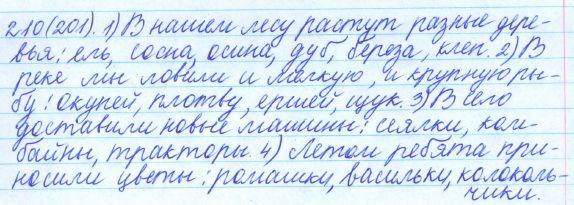 210(201). 1) В нашем лесу растут разные дере-
вья: ель, сосна, осина, дуб, береза, клен. 2) В
реке мы ловили и мелкую, и крупную ры-
бу: окуней, плотву, ершей, щук. 3) В село
доставили новые машины: сеялки, ком-
байны, тракторы. 4) Летом ребята при-
носили цветы: ромашки, васильки, колоколь-
чики.